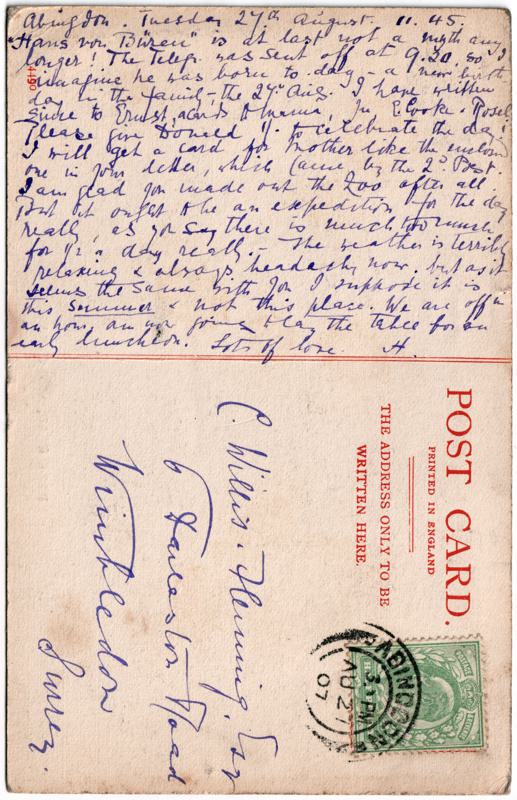 Abingdon. Tuesday 27th August. 11.45.
"Hans von Büren" is at last not a myth any
longer! The telegr. was sent off at 9.20. so I
imagine he was born to-day - a new birth
day in the family - the 27th Aug. I have written
since to Ernst, &
Please give Donald 1/- to celebrate the day!
I will get a card for Mother like the enclosed
one in your letter, which came by the 2d Post
I am glad you made out the Zoo after all.
But it ought to be an expedition for the day
really, as you say there is much too much
for ½ a day really. - The weather is terribly
relaxing & always headachy now. but as it
seems the same with you I suppose it is
this summer & not this place. We are off in
an hour am now going to lay the table for an
early luncheon. Lots of love. H.
4490
POST CARD.
PRINTED IN ENGLAND
THE ADDRESS ONLY TO BE
WRITTEN HERE.
C. Willis. Fleming. Esq
6 Road
Wimbledon
Surrey.
ABINGDON
3. PM
AU 27
07